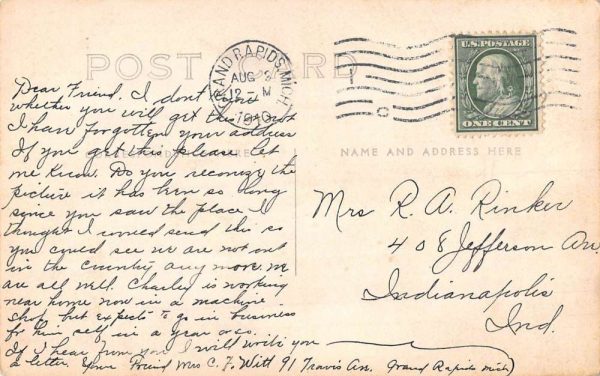 POST CARD
GRAND RAPIDS, MICH.
AUG
12-M
1910
U.S. POSTAGE
ONE CENT
NAME AND ADDRESS HERE
Dear Friend. I don't know
whether you will get this or not
I have forgotten your address
If you get this please let
me know. Do you reconize the
picture it has been so long
since you saw the place I
thought I would send this so
you could see we are not out
in the Country any more. We
are all well. Charley is working
near home now in a machine
shop but expects to go in business
for him self in a year or so.
If I hear from you I will write you
a letter. Your Friend Mrs C. F. Witt 91 Travis Av. Grand Rapids Mich
Mrs R. A. Rinker
408 Jefferson Av.
Indianapolis
Ind.